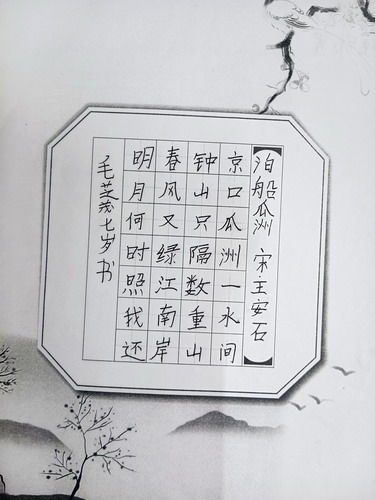 泊船瓜洲 宋主安石
京口瓜洲一水间
钟山只隔数重山
春风又绿江南岸
明月何时照我还
毛芝茂七岁书